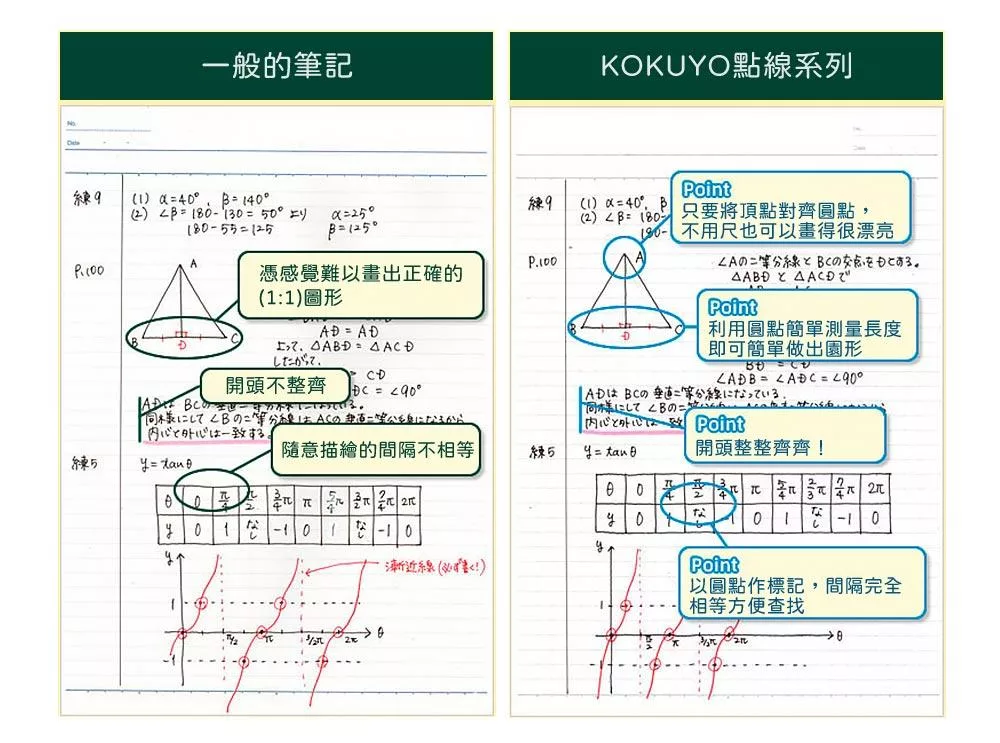 一般的筆記
No.
Date
練9
(1) α=40°, β=140°
(2) ∠β=180-130=50° より α=25°
180-55=125 β=125°
P.100
A
B
D
C
憑感覺難以畫出正確的
(1:1)圖形
AD = AD
よって、△ABD = △ACD
したがって、
= CD
DC = ∠90°
開頭不整齊
ADは BCの垂直二等分線になっている。
同様にして ∠Bの二等分線は ACの垂直二等分線になるから
内心と外心は一致する。
隨意描繪的間隔不相等
練5
y=tanθ
θ 0 π/4 π/2 3/4π π 5/4π 3/2π 7/4π 2π
y 0 1 なし -1 0 1 なし -1 0
y
漸近線(必ず書く!)
1
π/2 π 3/2π 2π θ
-1
KOKUYO點線系列
No.
Date
練9
(1) α=40°, β
(2) ∠β=180-
180-
Point
只要將頂點對齊圓點，
不用尺也可以畫得很漂亮
P.100
A
B
D
C
∠Aの二等分線と BCの交点を Dとする。
△ABD と △ACDで
Point
利用圓點簡單測量長度
即可簡單做出園形
BD = CD
∠ADB = ∠ADC = ∠90°
ADは BCの垂直二等分線になっている。
同様にして ∠Bの二
内心と外心は一致
Point
開頭整整齊齊！
練5
y=tanθ
θ 0 π/4 π/2 3/4π π 5/4π 2/3π 7/4π 2π
y 0 1 なし -1 0 1 なし -1 0
Point
以圓點作標記，間隔完全
相等方便查找
y
1
π/2 π 3/2π 2π θ
-1